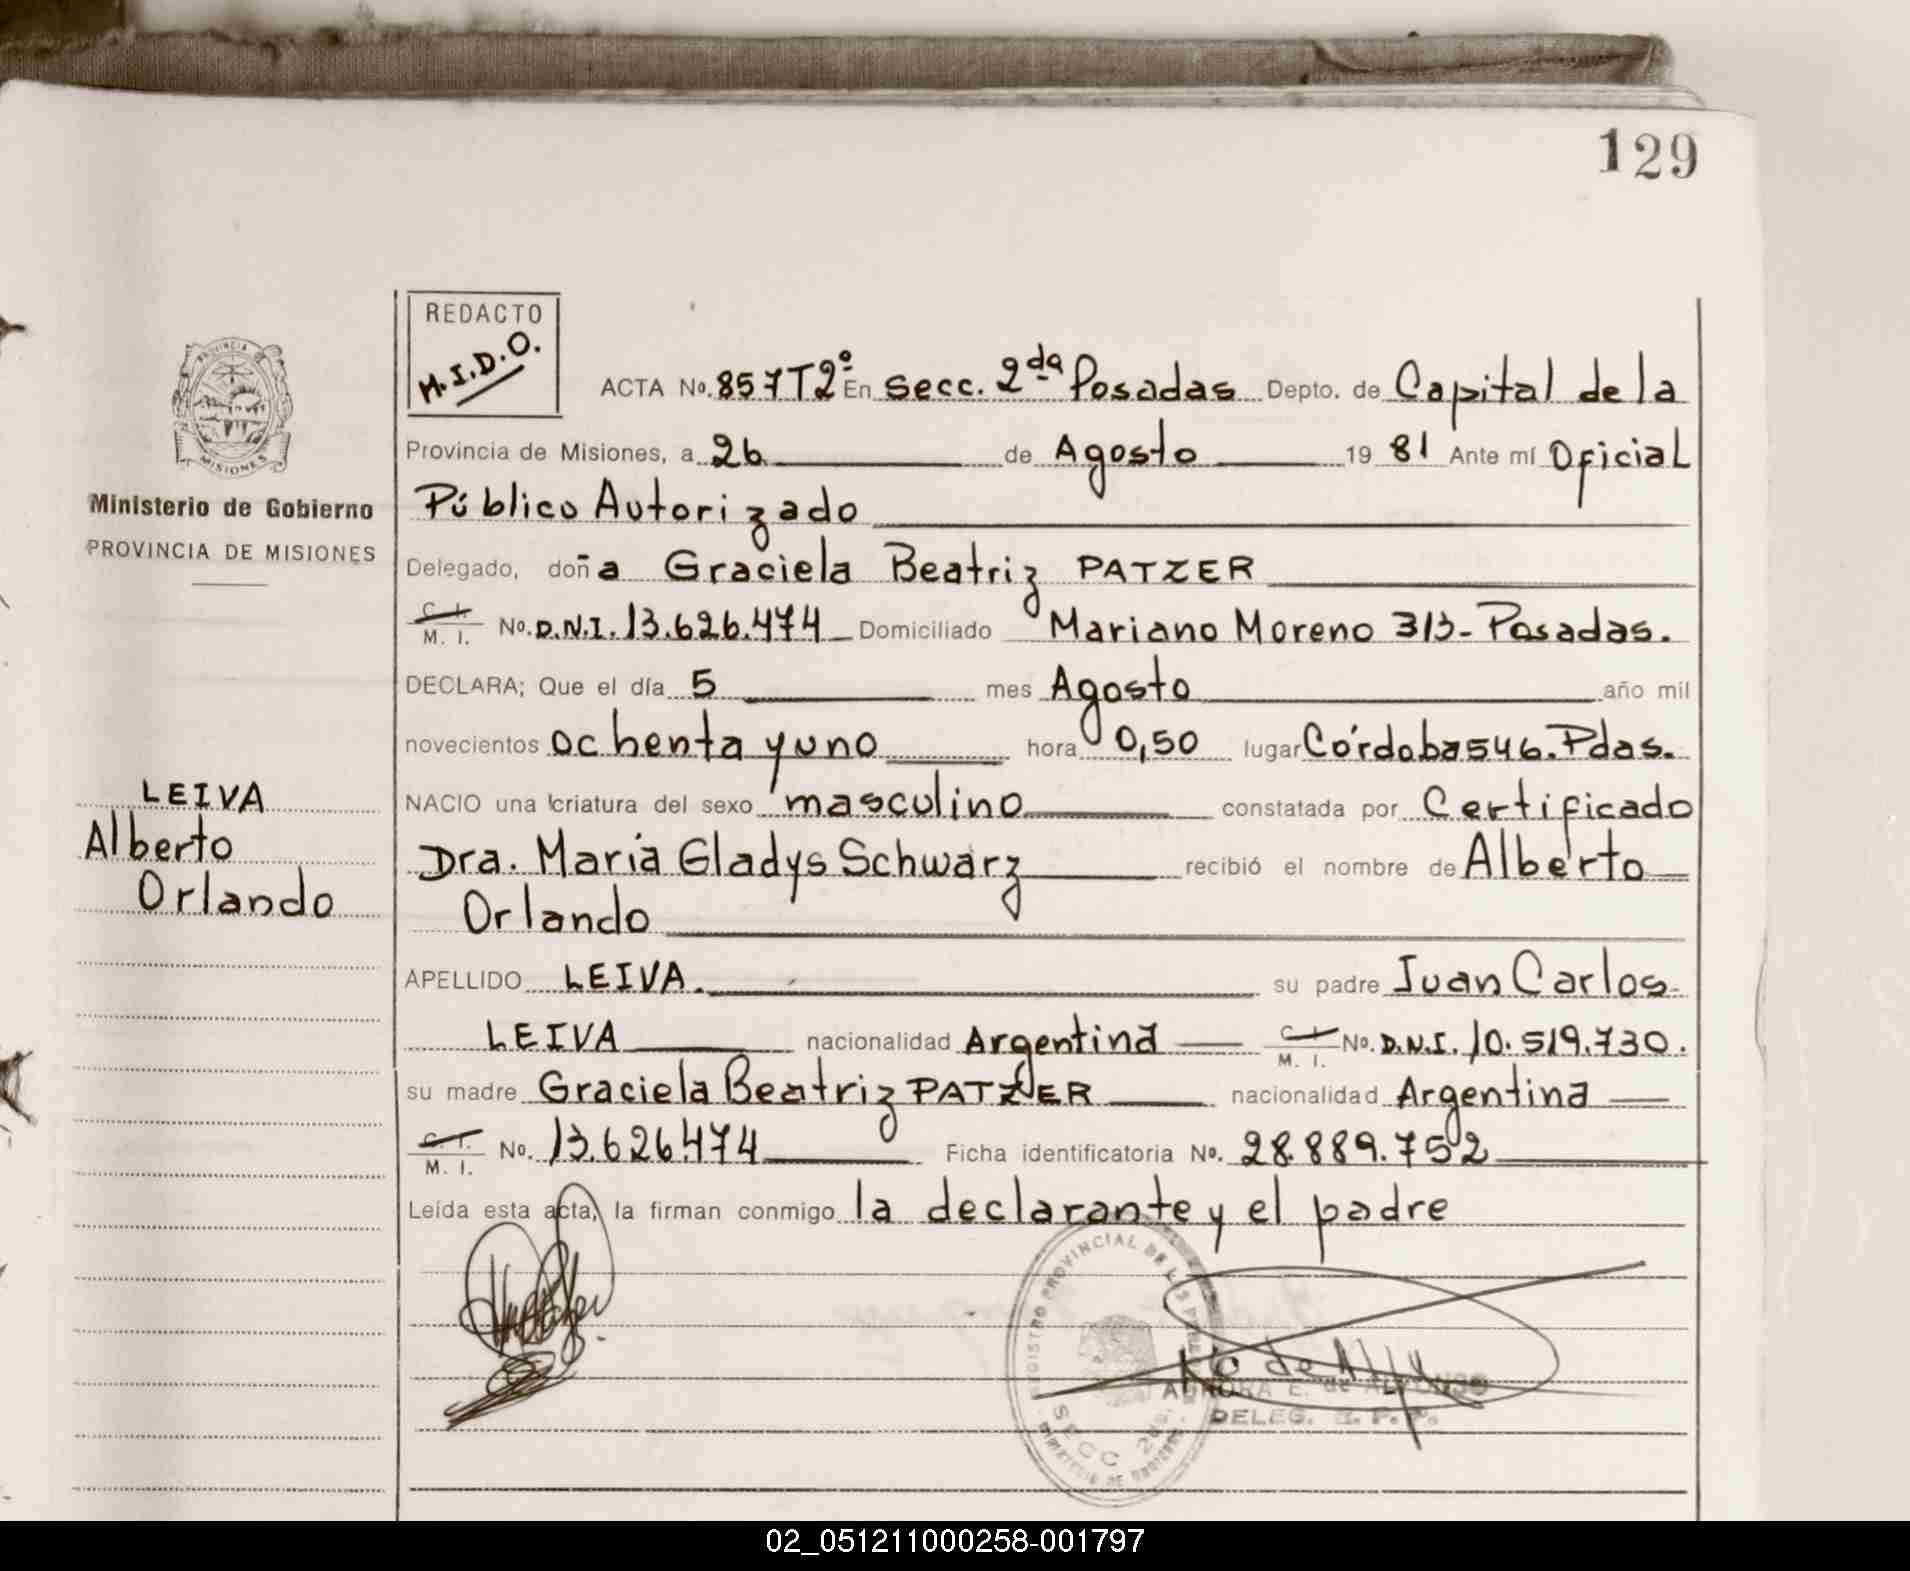 129
REDACTO
M.I.D.O.
ACTA No. 857 T2º En Secc. 2da Posadas Depto. de Capital de la
Provincia de Misiones, a 26 de Agosto 19 81 Ante mí Oficial
Público Autorizado
Delegado, doña Graciela Beatriz PATZER
C. I. M. I. No. D.N.I. 13.626.474 Domiciliado Mariano Moreno 313-Posadas.
DECLARA; Que el día 5 mes Agosto año mil
novecientos ochenta y uno hora 0,50 lugar Córdoba 546. Pdas.
NACIO una criatura del sexo masculino constatada por Certificado
Dra. Maria Gladys Schwarz recibió el nombre de Alberto
Orlando
APELLIDO LEIVA. su padre Juan Carlos
LEIVA nacionalidad Argentina C. I. M. I. No. D.N.I. 10.519.730.
su madre Graciela Beatriz PATZER nacionalidad Argentina
C. I. M. I. No. 13.626.474 Ficha identificatoria No. 28.889.752
Leída esta acta, la firman conmigo la declarante y el padre
PROVINCIA
MISIONES
Ministerio de Gobierno
PROVINCIA DE MISIONES
LEIVA
Alberto
Orlando
REGISTRO PROVINCIAL DE LAS
SECC 2da.
MINISTERIO DE GOBIERNO
AURORA E. de ALFONSO
DELEG. R. P. P.
02_051211000258-001797